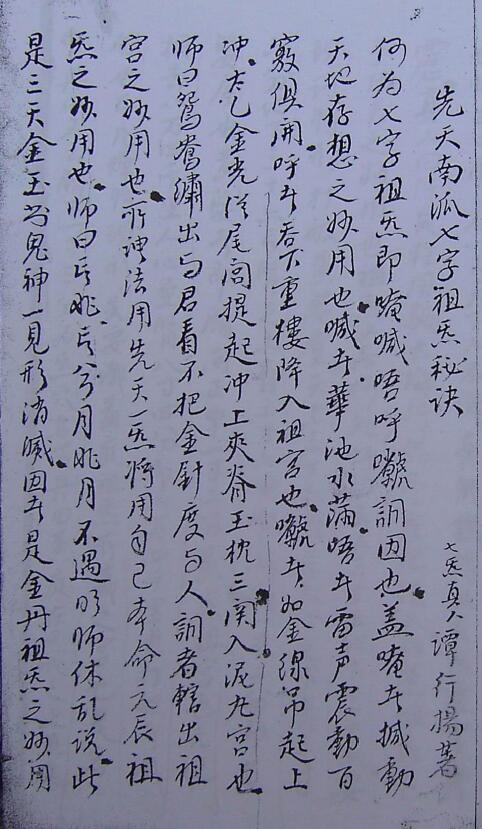 先天南派七字祖炁秘訣
七炁真人譚行揚著
何为七字祖炁即唵喊唔呼囐詷因也蓋唵者掀動
天地存想之妙用也喊者華池水滿唔者雷声震動百
竅俱開呼者吞下重樓降入祖宮也囐者如金線吊起上
冲太乙金光從尾閭提起冲上夾脊玉枕三関入泥丸宮也
師曰鴛鴦繡出与君看不把金針度与人詷者轄出祖
宮之妙用也所谓法用先天一炁將用自己本命元辰祖
炁之妙用也師曰兮月不遇明師休乱説此
是三天金玉鬼神一見形消滅因者是金丹祖炁之妙用